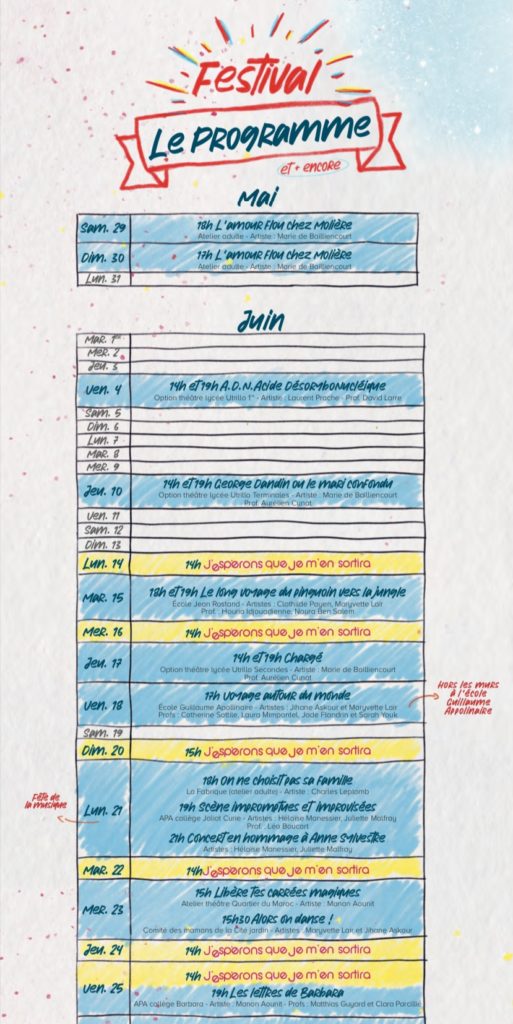 Festival
Le Programme
et + encore
Mai
Sam. 29
18h L'amour flou chez Molière
Atelier adulte - Artiste : Marie de Bailliencourt
Dim. 30
17h L'amour flou chez Molière
Atelier adulte - Artiste : Marie de Bailliencourt
Lun. 31
Juin
Mar. 1er
Mer. 2
Jeu. 3
Ven. 4
14h et 19h A.D.N. Acide Désoxyribonucléique
Option théâtre lycée Utrillo 1° - Artiste : Laurent Prache - Prof. David Larre
Sam. 5
Dim. 6
Lun. 7
Mar. 8
Mer. 9
Jeu. 10
14h et 19h George Dandin ou le mari confondu
Option théâtre lycée Utrillo Terminales - Artiste : Marie de Bailliencourt
Prof. Aurélien Cunat
Ven. 11
Sam. 12
Dim. 13
Lun. 14
14h J'esperons que je m'en sortira
Mar. 15
18h et 19h Le long voyage du pingouin vers la jungle
École Jean Rostand - Artistes : Clothilde Payen, Maryvette Lair
Prof : Houria Idjouadienne, Noura Ben Salem
Mer. 16
14h J'esperons que je m'en sortira
Jeu. 17
14h et 19h Chargé
Option théâtre lycée Utrillo Secondes - Artiste : Marie de Bailliencourt
Prof. Aurélien Cunat
Ven. 18
17h Voyage autour du monde
École Guillaume Apollinaire - Artistes : Jihane Askour et Maryvette Lair
Profs : Catherine Sottile, Laura Mimpontel, Jade Flandrin et Sarah Youk
Hors les murs
à l'école
Guillaume
Appolinaire
Sam. 19
Dim. 20
15h J'esperons que je m'en sortira
Fête de
la musique
Lun. 21
18h On ne choisit pas sa famille
La Fabrique (atelier adulte) - Artiste : Charles Leplomb
19h Scène impromptues et improvisées
APA collège Joliot Curie - Artistes : Héloïse Manessier, Juliette Malfray
Prof. : Léo Boucart
21h Concert en hommage à Anne Sylvestre
Artistes : Héloïse Manessier, Juliette Malfray
Mar. 22
14h J'esperons que je m'en sortira
Mer. 23
15h Libère tes carrées magiques
Atelier théâtre Quartier du Maroc - Artiste : Manon Aounit
15h30 Alors on danse !
Comité des mamans de la Cité jardin - Artistes : Maryvette Lair et Jihane Askour
Jeu. 24
14h J'esperons que je m'en sortira
Ven. 25
14h J'esperons que je m'en sortira
19h Les lettres de Barbara
APA collège Barbara - Artiste : Manon Aounit - Profs : Matthias Guyard et Clara Parcillié